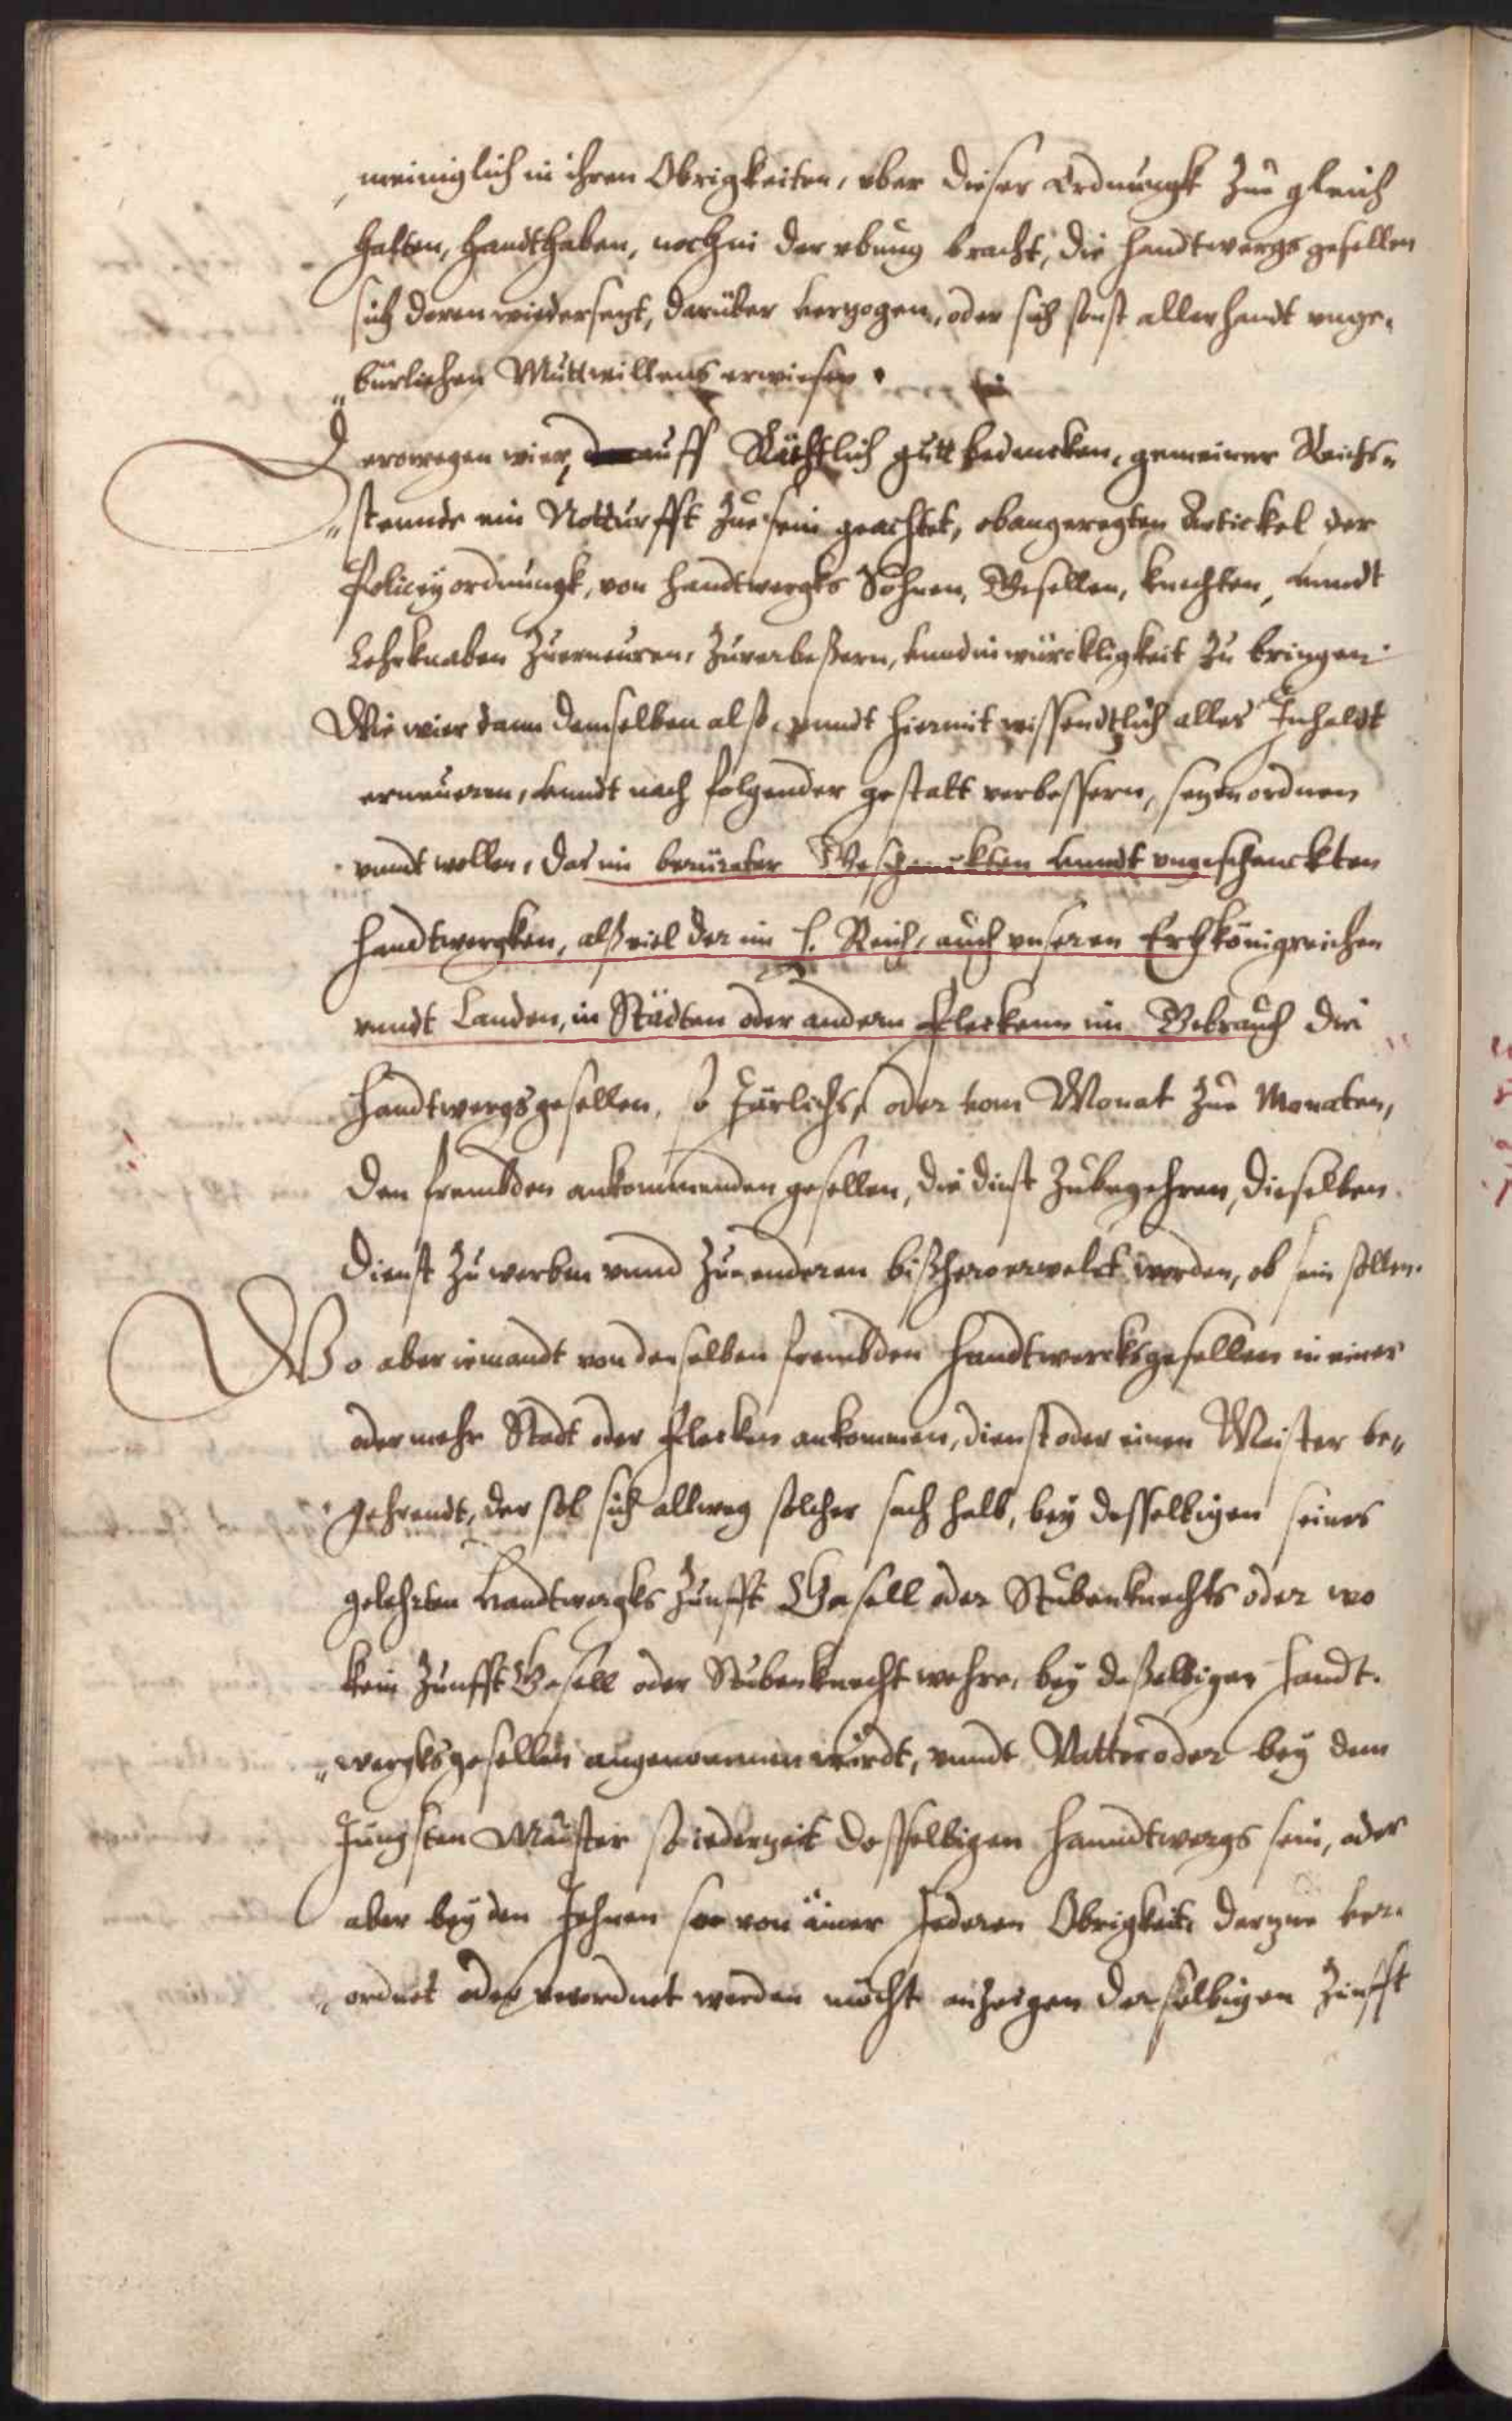 meiniglich in ihren Obrigkeiten, vber dieser Ordnungk zue gleich
halten, handthaben, noch in der vbung bracht, die handtwergs gesellen
sich deren wiedersezt, darüber verzogen, oder sich sonst allerhandt unge-
"bürlichen Muttwillens erwiesen.
Derowegen wier, auff Räthlich guttbeduncken, gemeiner Reichs"
"stennde ein Notturfft zue sein geachtet, obangeregten Artickel der
Policey ordnungk, von handtwergks Söhnen, Gesellen, knechten, vnndt
Lehrknaben Zuerneuren, Zuverbeßern, vnnd in würckligkeit zu bringen
Wie wier dann denselben alß, vnndt hiermit wissendtlich alles Inhaldt
erneuern, vnndt nach folgender gestalt verbessern, sezen ordnen
vnndt wollen, das in berürter Geschenckten vnndt vngeschenckten
handtwergken, alß viel der im h. Reich, auch vnseren Erbkönigreichen
vnndt Landen, in Städten oder andern fleckenn im Gebrauch die
handtwergsgesellen, so Järlichs, oder vom Monat zue Monaten,
den frembden ankommenden gesellen, die dinst Zubegehren, dieselben
dienst zu werben vnnd zue enderen bißhero erwelet worden, ob sein sollen.
Wo aber iemandt von denselben frembden handtwercksgesellen in einer
oder mehr Stadt oder flecken ankommen, dienst oder einen Meister be"
gehrendt, der sol sich allweg solcher sach halb, bey desselbigen seines
gelehrten handtwergks Zunfft Gesell oder Stubenknechts oder wo
kein Zunfft Gesell oder Stubenknecht wehre, bey deßelbigen handt-
"wergksgesellen angenommen würdt, vnndt Vatter oder bey dem
Jüngsten Meister so iederzeit desselbigen hanndtwergs sein, oder
aber bey den Jehnen so von einer Jederen Obrigkeit darzue ver-
"ordnet oder verordnet werden möcht anzeigen derselbigen Zunfft